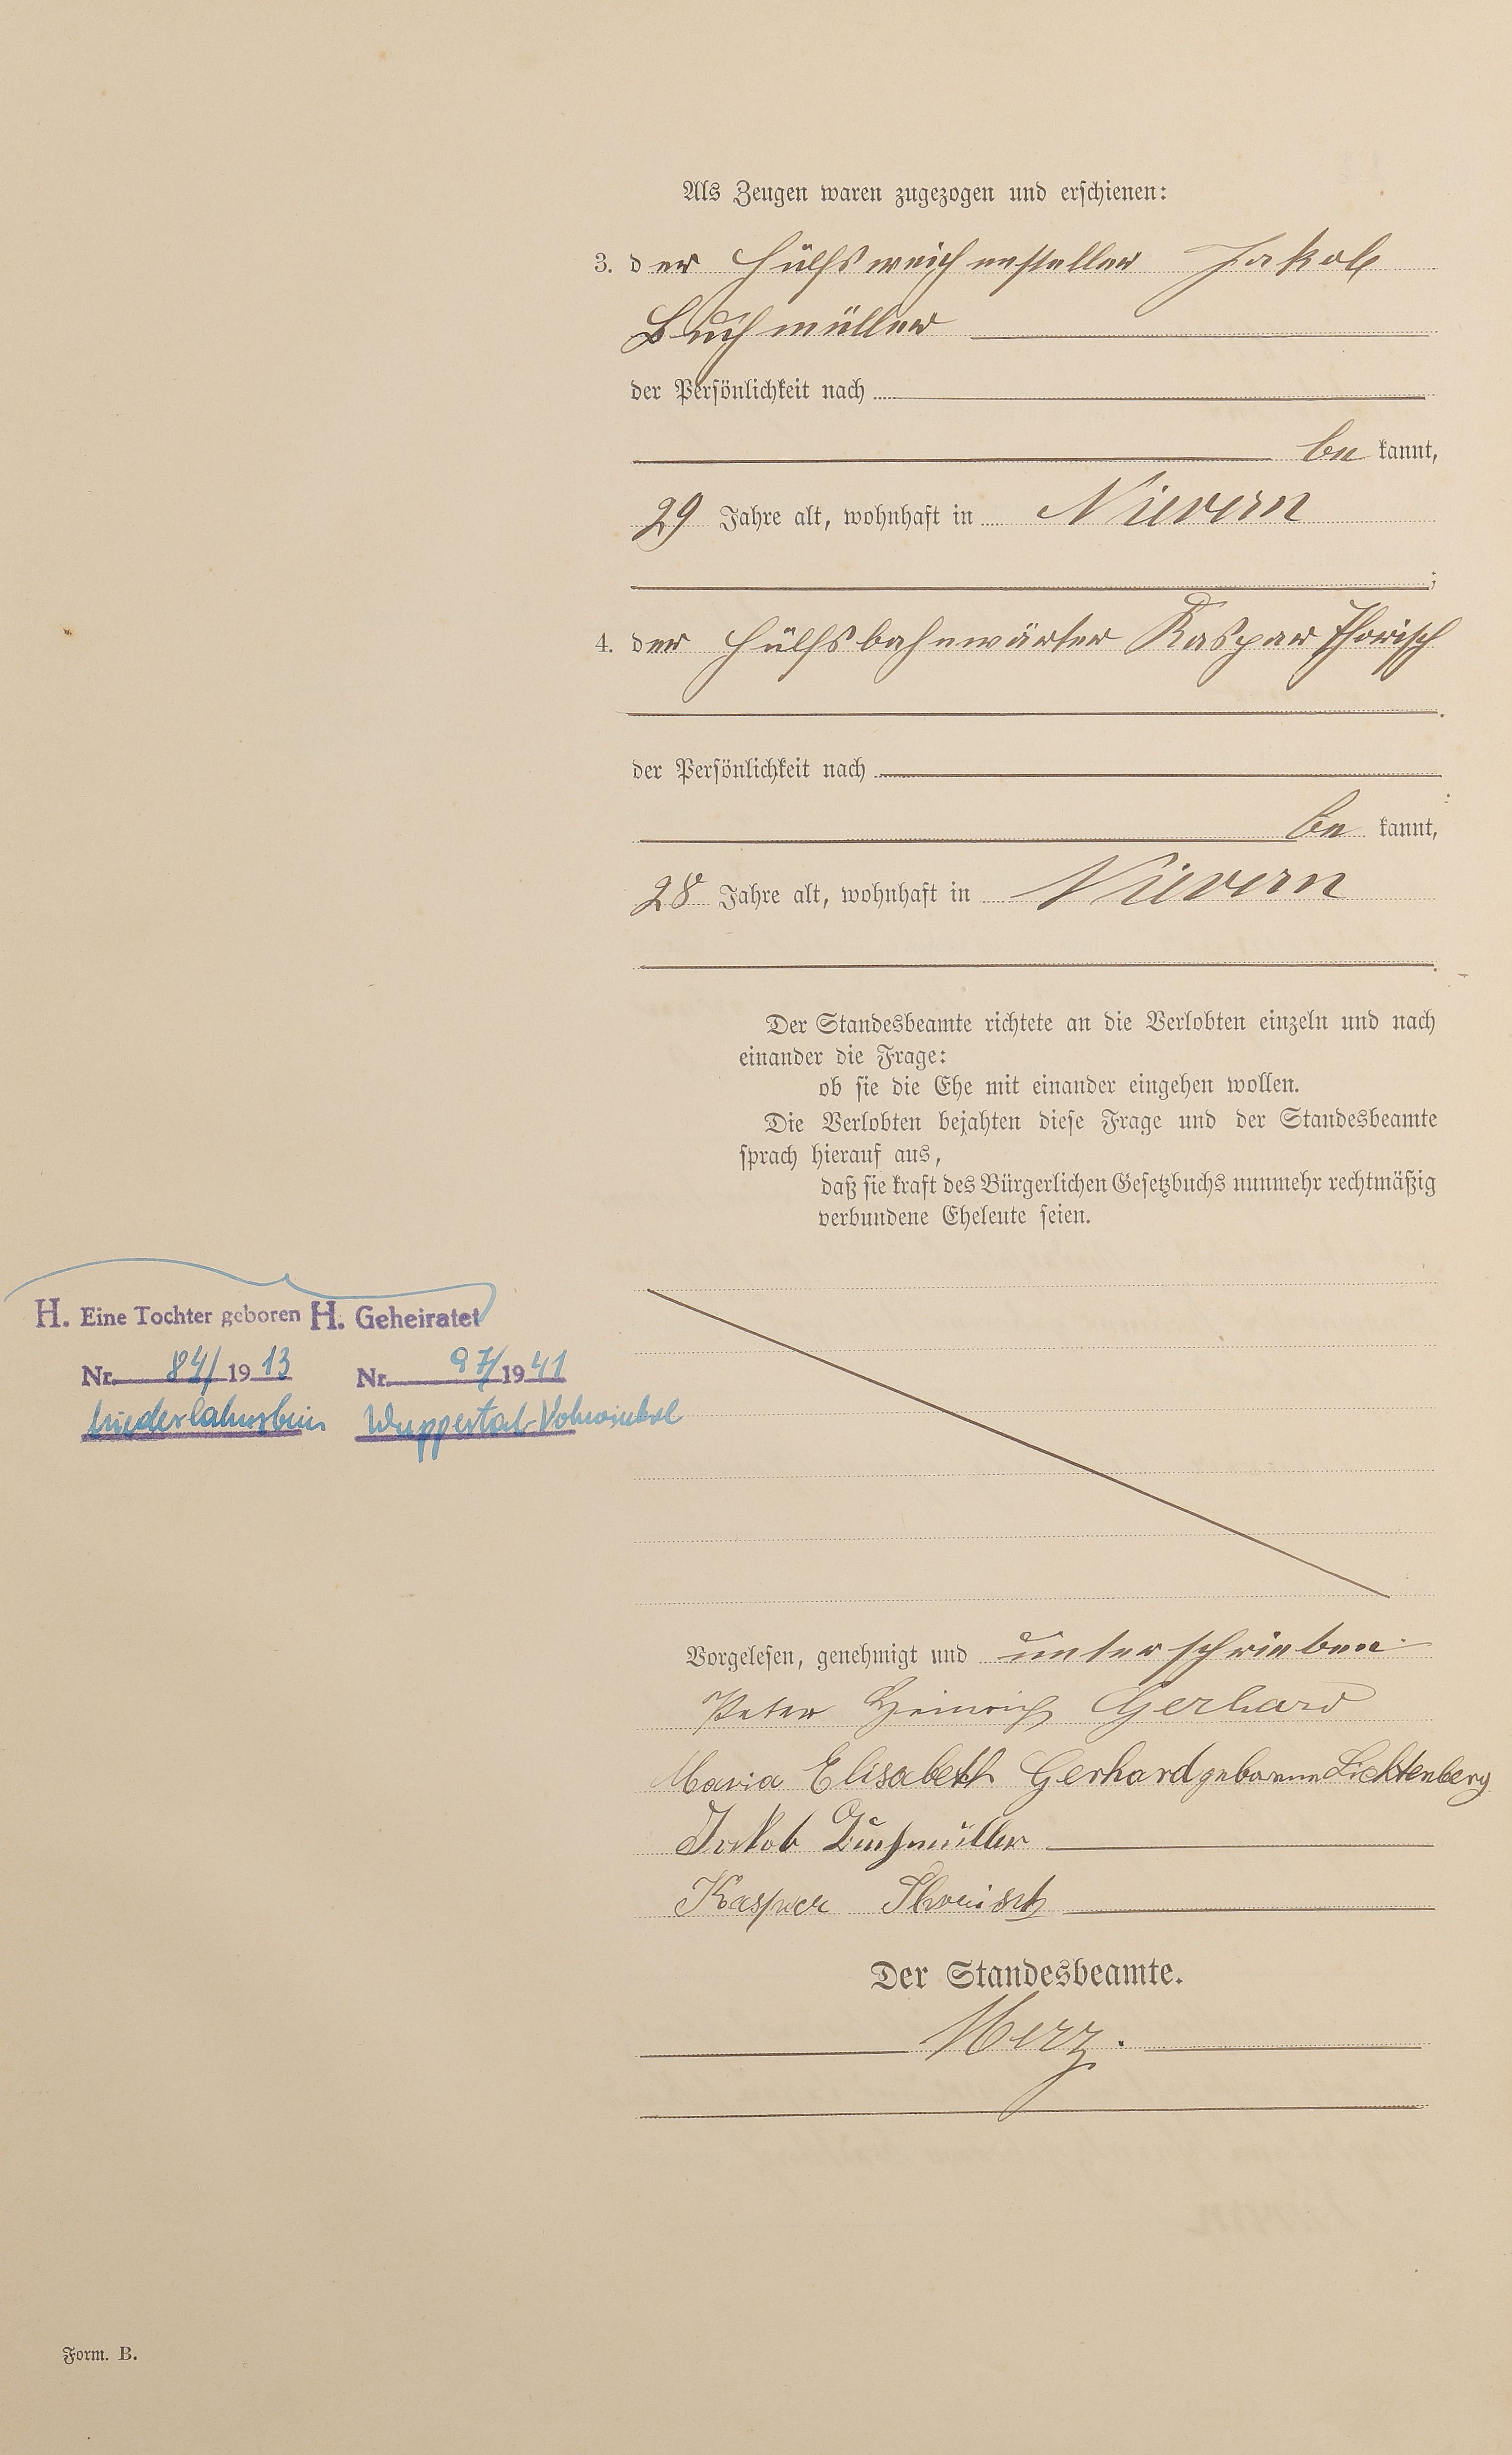 Als Zeugen waren zugezogen und erschienen:
3. der Hülfsweichensteller Jakob
Buchmüller
der Persönlichkeit nach
be kannt,
29 Jahre alt, wohnhaft in Nievern
;
4. der Hülfsbahnwärter Kaspar
der Persönlichkeit nach
be kannt,
28 Jahre alt, wohnhaft in Nievern
Der Standesbeamte richtete an die Verlobten einzeln und nach
einander die Frage:
ob sie die Ehe mit einander eingehen wollen.
Die Verlobten bejahten diese Frage und der Standesbeamte
sprach hierauf aus,
daß sie kraft des Bürgerlichen Gesetzbuchs nunmehr rechtmäßig
verbundene Eheleute seien.
H. Eine Tochter geboren H. Geheiratet
Nr. 84/1913 Nr. 97/1941
Niederlahnstein Wuppertal-Vohwinkel
Vorgelesen, genehmigt und unterschrieben
Peter Heinrich Gerhard
Maria Elisabeth Gerhard geborene Lichtenberg
Jakob Buchmüller
Kaspar
Der Standesbeamte.
Merz.
Form. B.